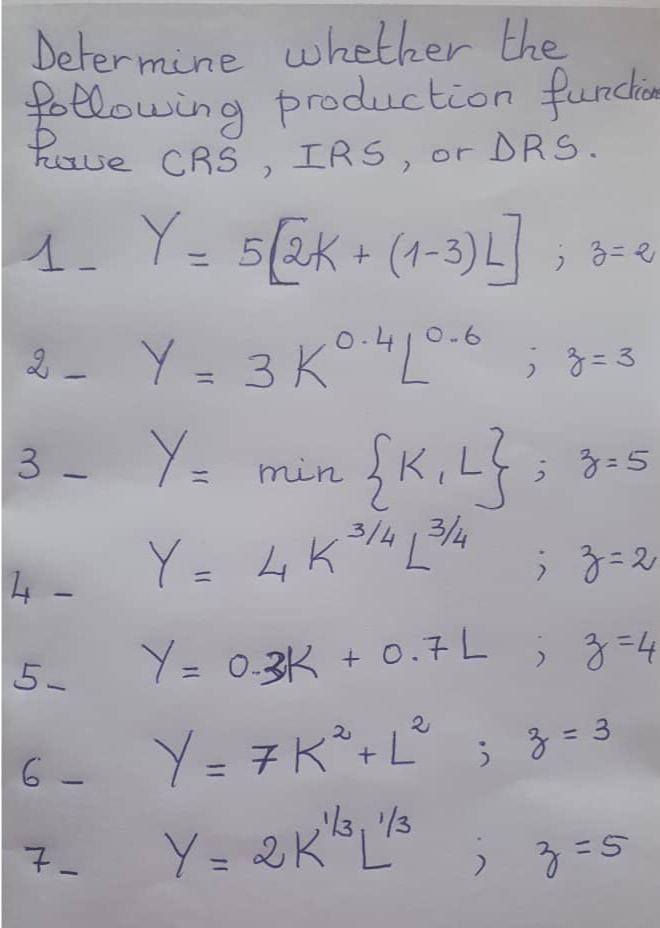 Determine whether the
following production function
have CRS, IRS, or DRS.
1- Y = 5[2K + (1-3)L] ; z=2
2- Y = 3 K^0.4 L^0.6 ; z=3
3- Y = min {K, L} ; z=5
4- Y = 4 K^3/4 L^3/4 ; z=2
5- Y = 0.3K + 0.7L ; z=4
6- Y = 7K² + L² ; z=3
7- Y = 2K^1/3 L^1/3 ; z=5